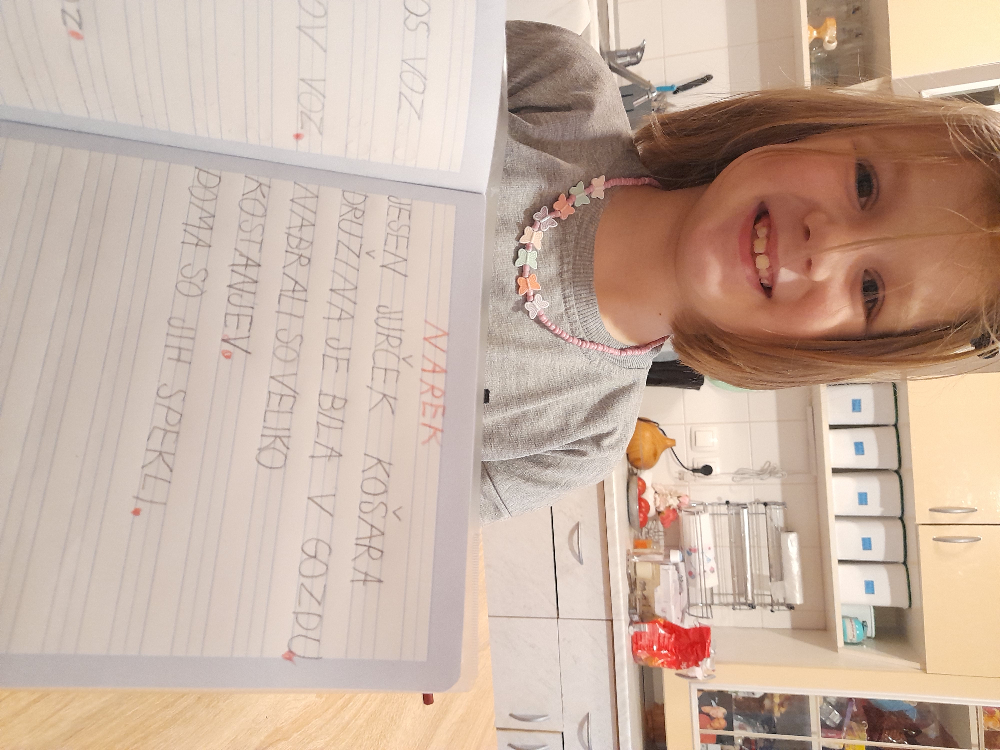 OŠ VOZ
OV VOZ.
OZ.
NAREK
JESEN JURČEK KOŠARA
DRUŽINA JE BILA V GOZDU.
NABRALI SO VELIKO
KOSTANJEV.
DOMA SO JIH SPEKLI.